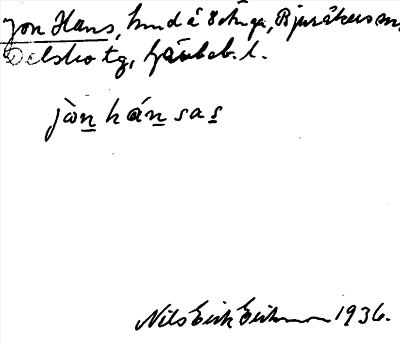 Jon Hans, hmd å 8 Ånga, Bjuråkers sn,
Delsbo tg, Gävleb. l.
jòn hán sas
Nils Erik Eriksson 1936.